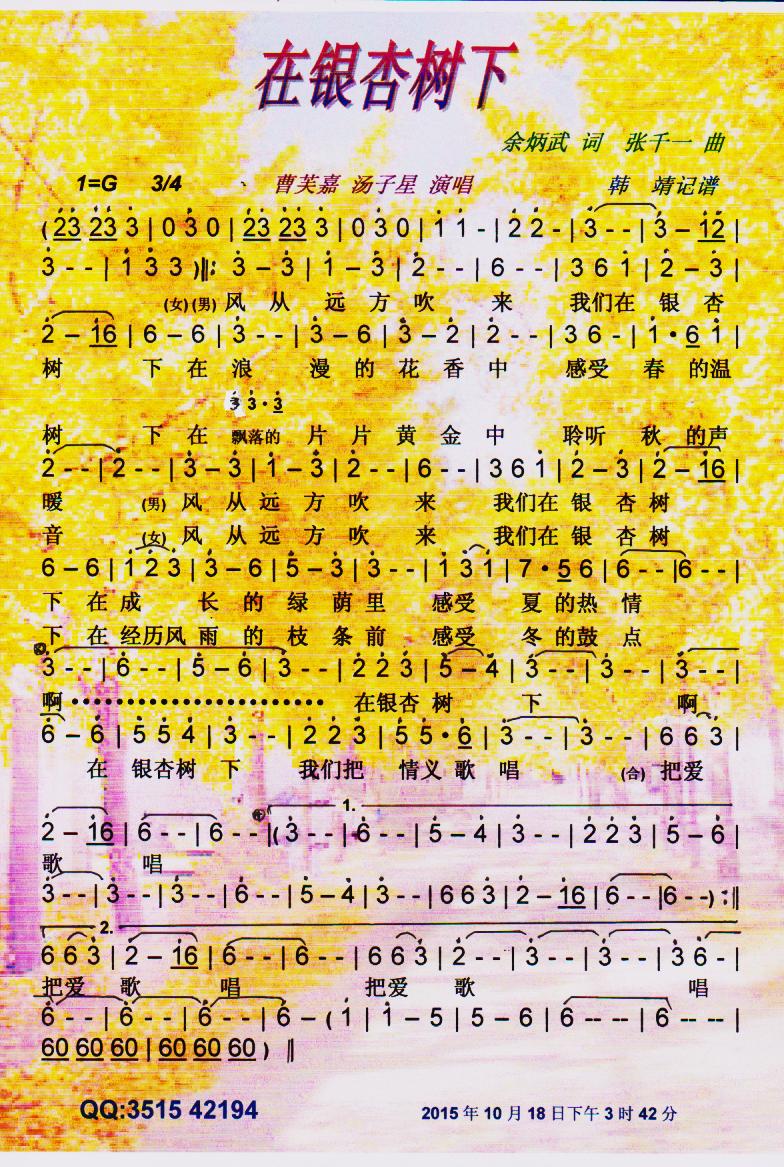 在银杏树下
余炳武 词 张千一 曲
1=G 3/4 曹芙嘉 汤子星 演唱 韩 靖记谱
( 23 23 3 | 0 3 0 | 23 23 3 | 0 3 0 | 1 1 - | 2 2 - | 3 - - | 3 – 12 |
3 - - | 1 3 3 )‖: 3 – 3 | 1 – 3 | 2 - - | 6 - - | 3 6 1 | 2 – 3 |
(女)(男) 风 从 远 方 吹 来 我们在 银 杏
2 – 16 | 6 – 6 | 3 - - | 3 – 6 | 3 – 2 | 2 - - | 3 6 - | 1 · 6 1 |
树 下 在 浪 漫 的 花 香 中 感受 春 的温
3 3 · 3
树 下 在 飘落的 片 片 黄 金 中 聆听 秋 的声
2 - - | 2 - - | 3 – 3 | 1 – 3 | 2 - - | 6 - - | 3 6 1 | 2 – 3 | 2 – 16 |
暖 (男) 风 从 远 方 吹 来 我们在 银 杏 树
音 (女) 风 从 远 方 吹 来 我们在 银 杏 树
6 – 6 | 1 2 3 | 3 – 6 | 5 – 3 | 3 - - | 1 3 1 | 7 · 5 6 | 6 - - | 6 - - |
下 在 成 长 的 绿 荫 里 感受 夏 的热 情
下 在 经历风 雨 的 枝 条 前 感受 冬 的鼓 点
3 - - | 6 - - | 5 – 6 | 3 - - | 2 2 3 | 5 – 4 | 3 - - | 3 - - | 3 - - |
啊 ························ 在银杏 树 下 啊
6 – 6 | 5 5 4 | 3 - - | 2 2 3 | 5 5 · 6 | 3 - - | 3 - - | 6 6 3 |
在 银杏树 下 我们把 情义 歌 唱 (合) 把爱
1.
2 – 16 | 6 - - | 6 - - |( 3 - - | 6 - - | 5 – 4 | 3 - - | 2 2 3 | 5 – 6 |
歌 唱
3 - - | 3 - - | 3 - - | 6 - - | 5 – 4 | 3 - - | 6 6 3 | 2 – 16 | 6 - - | 6 - - ) :‖
2.
6 6 3 | 2 – 16 | 6 - - | 6 - - | 6 6 3 | 2 - - | 3 - - | 3 - - | 3 6 - |
把爱 歌 唱 把爱 歌 唱
6 - - | 6 - - | 6 - - | 6 – ( 1 | 1 – 5 | 5 – 6 | 6 -- -- | 6 -- -- |
60 60 60 | 60 60 60 ) ‖
QQ:3515 42194 2015 年 10 月 18 日下午 3 时 42 分